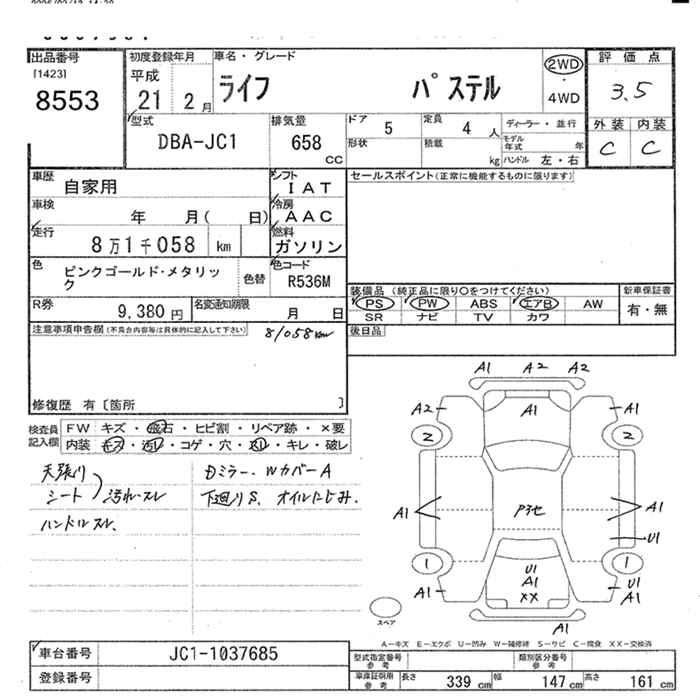 出品番号
[1423]
8553
初度登録年月
平成
21 2月
車名・グレード
ライフ パステル
2WD
・
4WD
評価点
3.5
外装 内装
C C
型式
DBA-JC1
排気量
658
CC
ドア 5
定員 4 人
形状
積載 kg
ディーラー・並行
モデル年式 年
ハンドル 左・右
車歴 自家用
シフト
IAT
車検 年 月( 日)
冷房
AAC
走行 8万1千058 km
燃料
ガソリン
色 ピンクゴールド・メタリック
色替
色コード
R536M
R券 9,380円
名変通知期限 月 日
セールスポイント(正常に機能するものに限ります)
装備品(純正品に限り○をつけてください)
PS PW ABS エアB AW
SR ナビ TV カワ
新車保証書
有・無
後日品
注意事項申告欄(不具合内容等は具体的に記入して下さい)
81058km
修復歴 有〔箇所 〕
検査員記入欄
FW キズ・飛石・ヒビ割・リペア跡・×要
内装 キズ・汚れ・コゲ・穴・スレ・キレ・破レ
天張り
シート 汚れ・スレ
ハンドルスレ、
Dミラー、WカバーA
下廻りS、オイルにじみ、
A1 A2 A2
A2 A1 A1
2 2
A1 P3セ A1
U1
1 U1 1
A1 A1 U1
XX A1
A1
スペア
A－キズ E－エクボ U－凹み W－補修跡 S－サビ C－腐食 XX－交換済
車台番号 JC1-1037685
登録番号
型式指定番号
参考
類別区分番号
参考
車庫証明用
参考
長さ 339 cm 幅 147 cm 高さ 161 cm